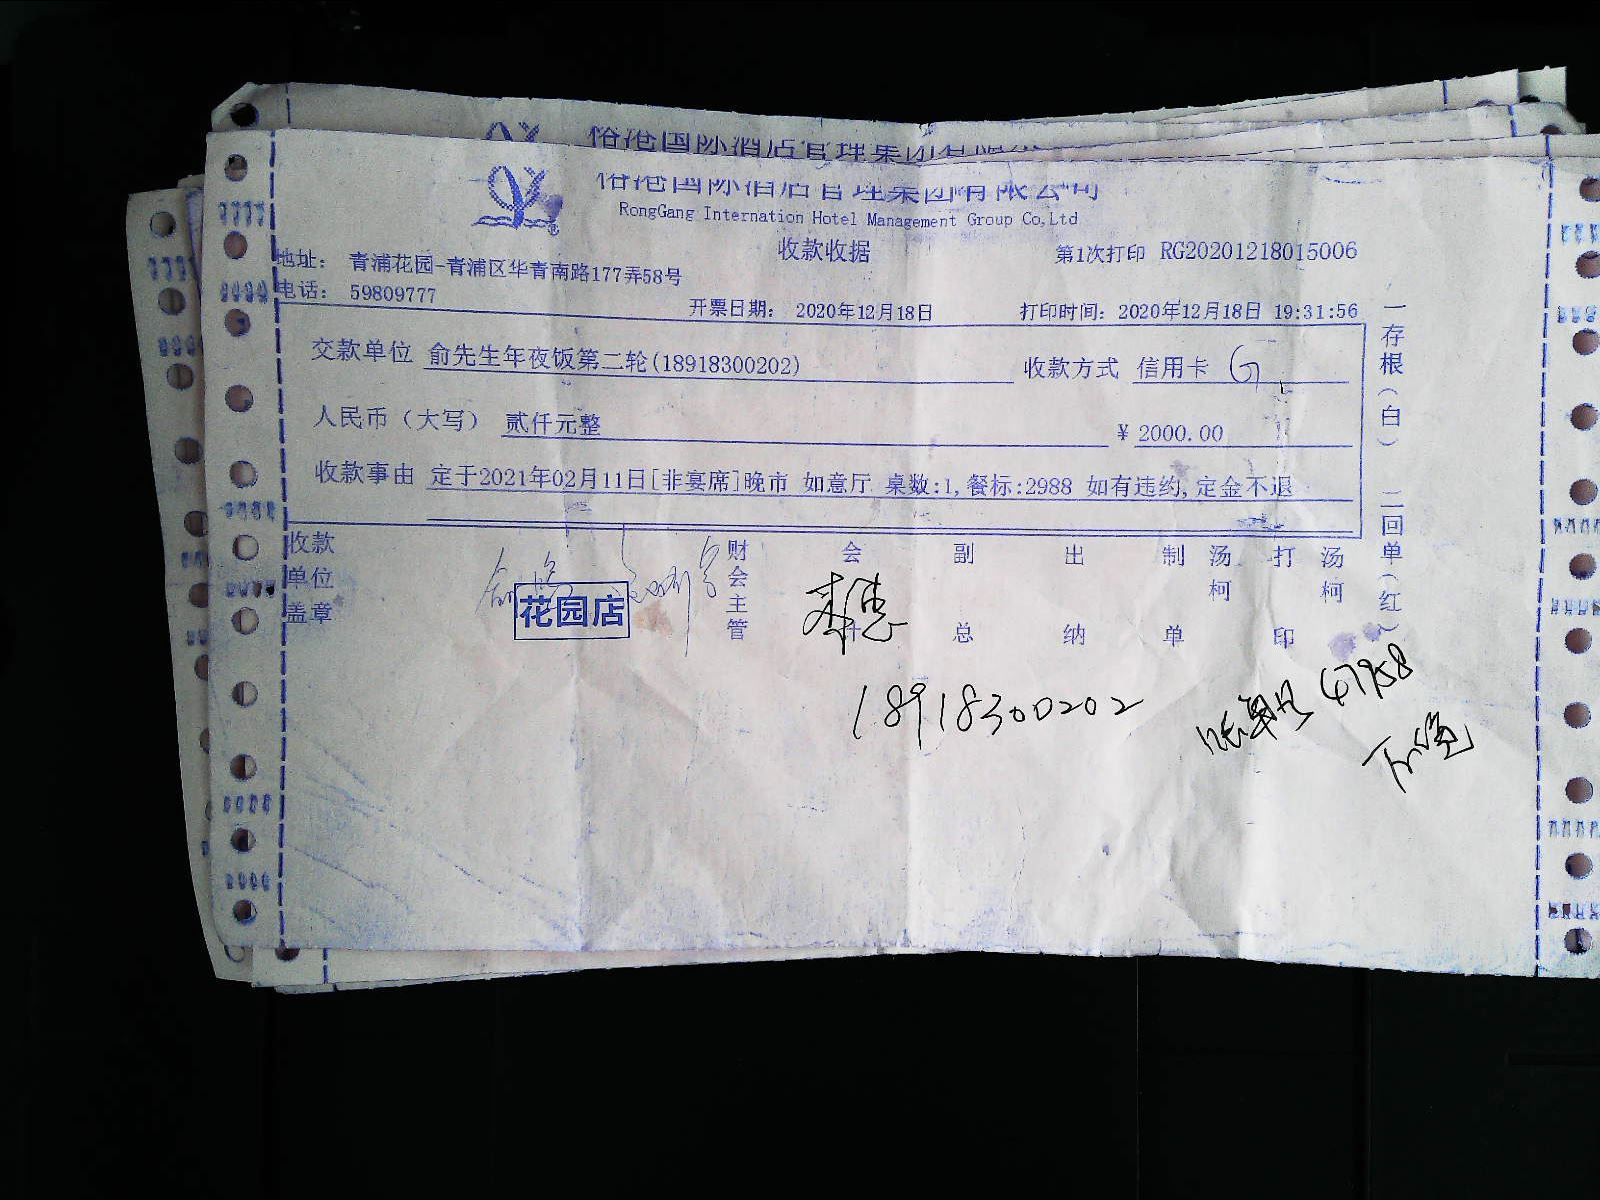 国际酒店管理集团有限
国际酒店管理集团有限公司
RongGang Internation Hotel Management Group Co,Ltd
收款收据
第1次打印 RG20201218015006
地址: 青浦花园-青浦区华青南路177弄58号
电话: 59809777
开票日期: 2020年12月18日
打印时间: 2020年12月18日 19:31:56
交款单位 俞先生年夜饭第二轮(18918300202)
收款方式 信用卡
人民币(大写) 贰仟元整
¥ 2000.00
收款事由 定于2021年02月11日[非宴席]晚市 如意厅 桌数:1,餐标:2988 如有违约,定金不退
一存根(白) 二回单(红)
收款单位盖章
花园店
财会主管
会计
副总
出纳
制单
汤柯
打印
汤柯
18918300202
67958